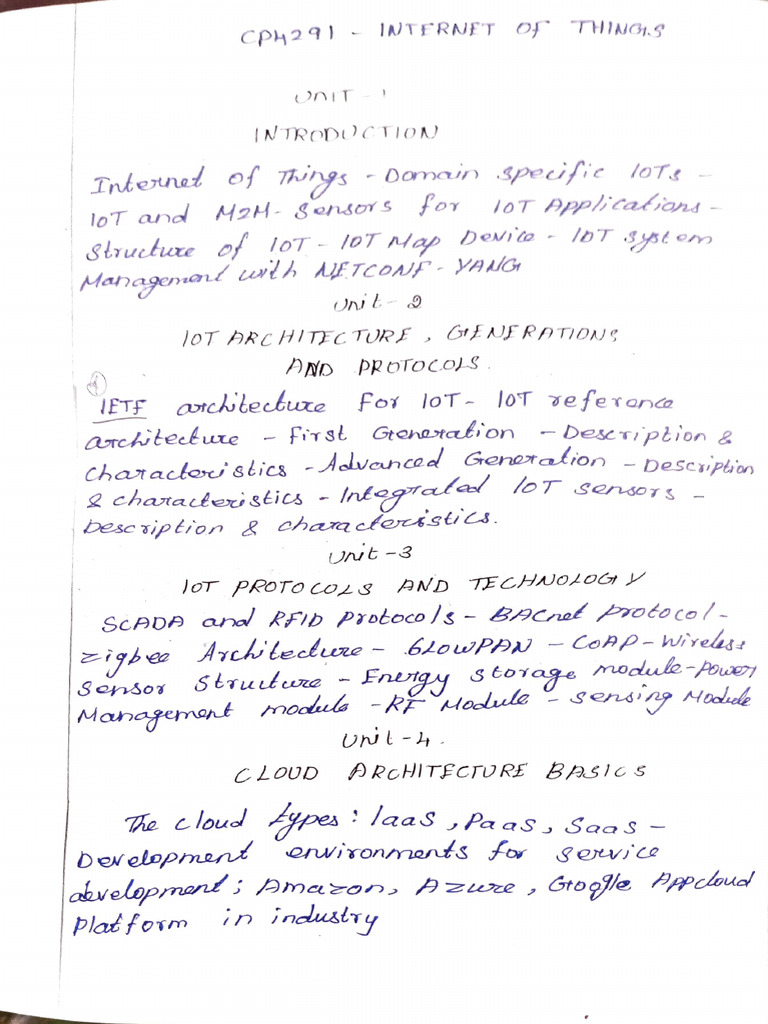 CP4291 - INTERNET OF THINGS
UNIT - 1
INTRODUCTION
Internet of Things - Domain specific IOTs -
IOT and M2M - Sensors for IOT Applications -
Structure of IOT - IOT Map Device - IOT System
Management with NETCONF - YANG
Unit - 2
IOT ARCHITECTURE, GENERATIONS
AND PROTOCOLS.
IETF architecture For IOT - IOT reference
architecture - First Generation - Description &
Characteristics - Advanced Generation - Description
& characteristics - Integrated IOT sensors -
Description & characteristics.
Unit - 3
IOT PROTOCOLS AND TECHNOLOGY
SCADA and RFID Protocols - BACnet protocol -
zigbee Architecture - 6LOWPAN - COAP - Wireless
Sensor Structure - Energy storage module - power
Management module - RF Module - Sensing Module
Unit - 4.
CLOUD ARCHITECTURE BASICS
The cloud types: IaaS, PaaS, SaaS -
Development environments for service
development; Amazon, Azure, Google Appcloud
Platform in industry